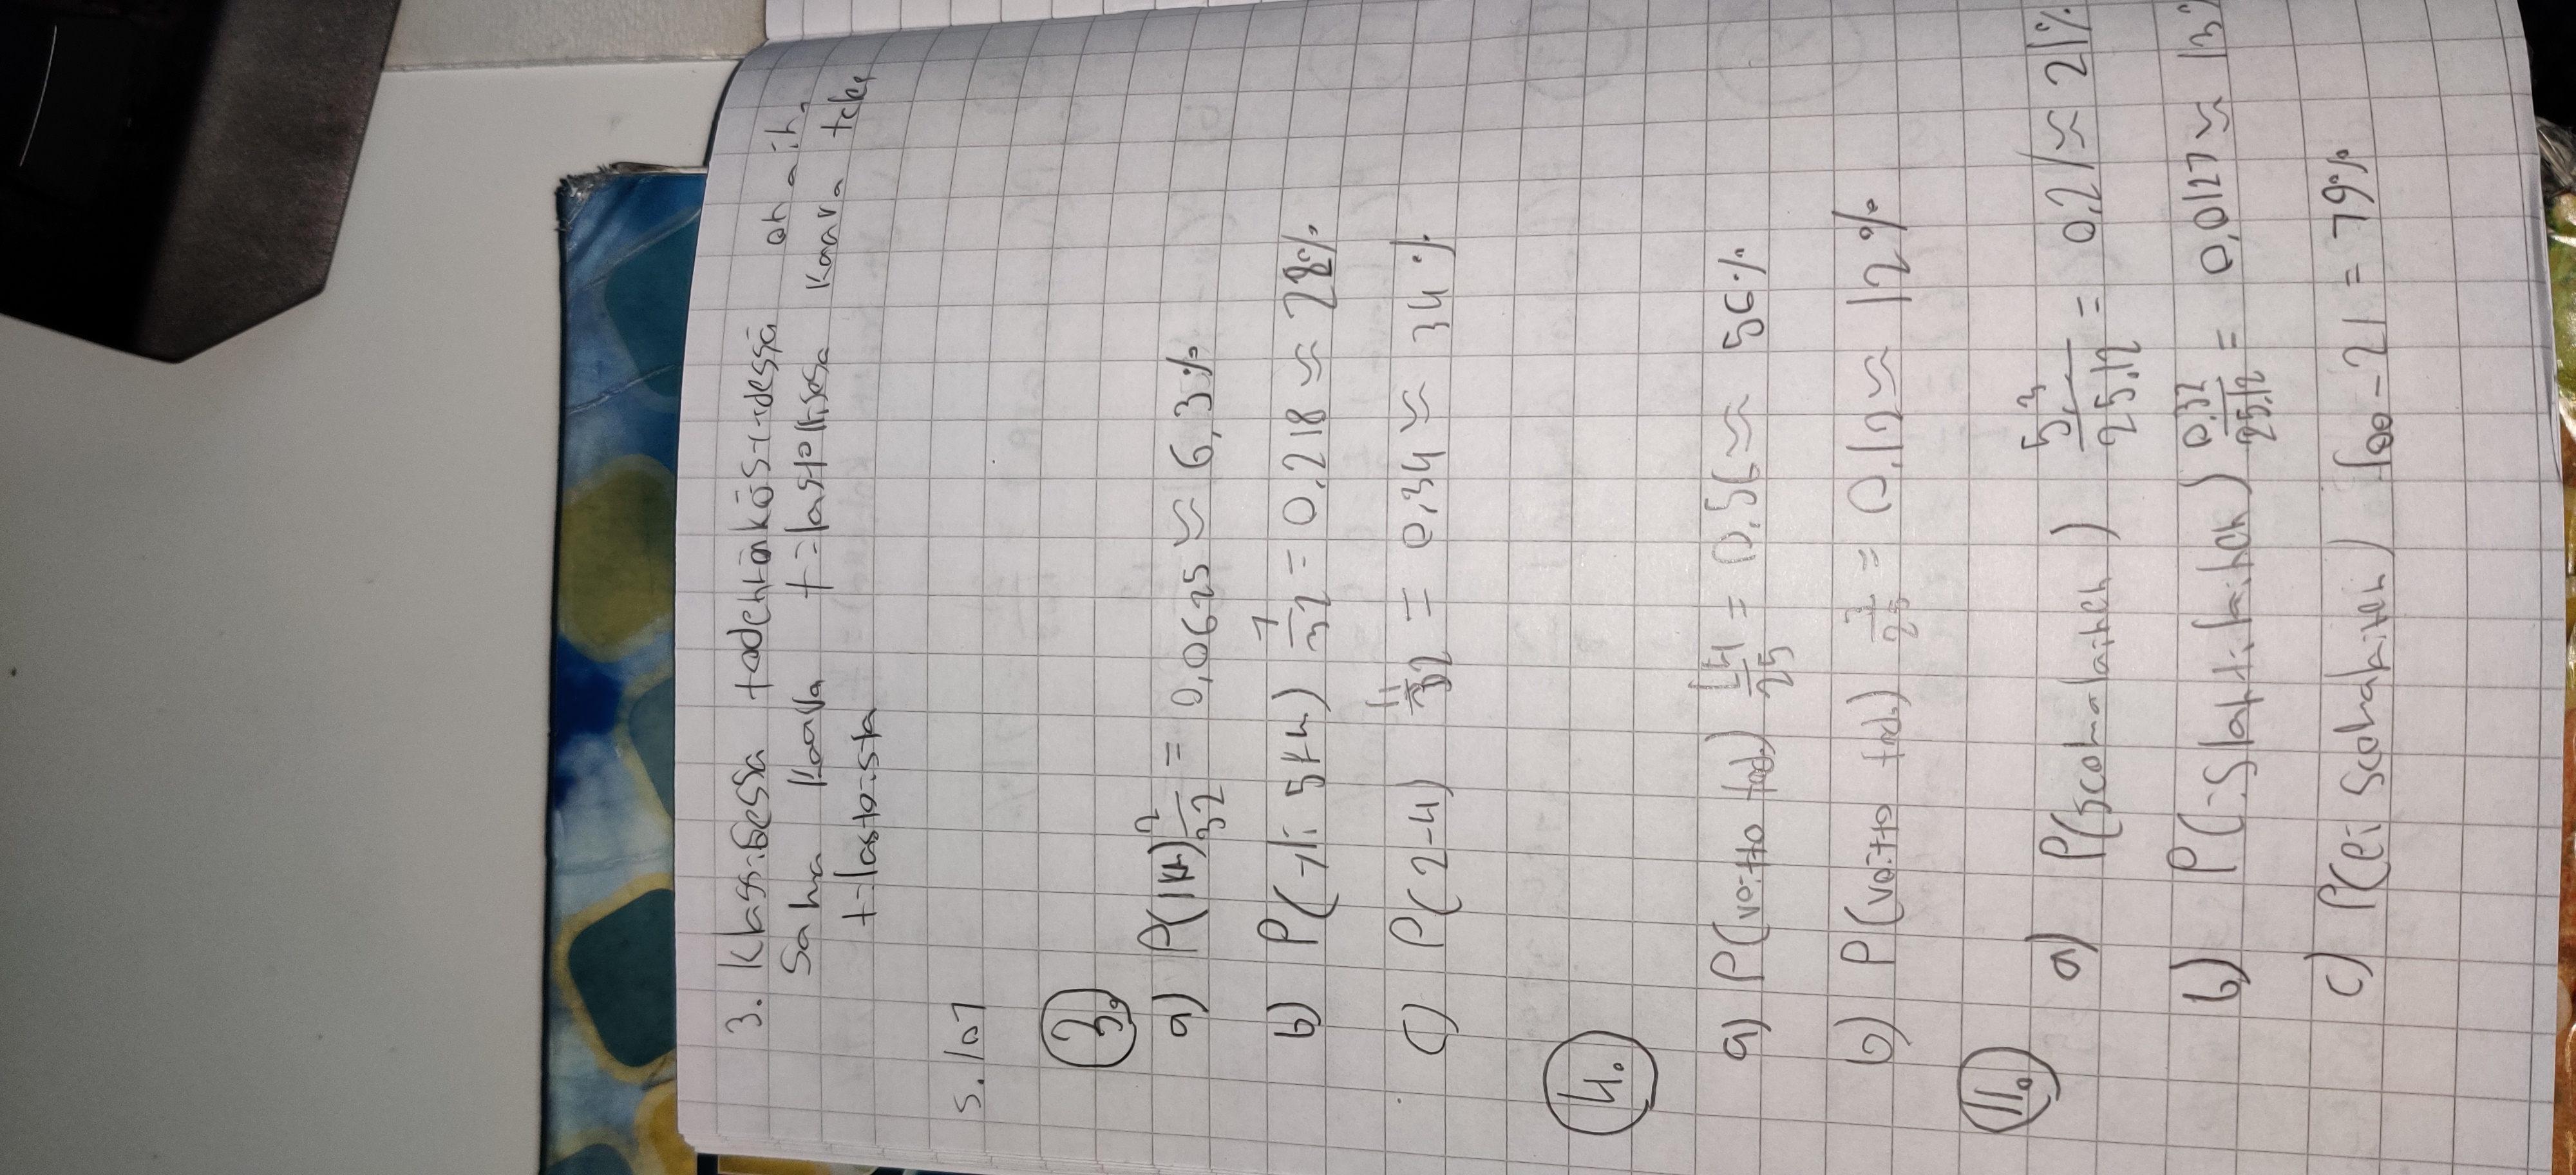 3. Klassisessa todennäköisyydessä on aina
sama kaava tilastollisessa kaava tulee
tilastoista
s. 107
3.
a) P(1km) 2/32 = 0,0625 ≈ 6,3%
b) P(yli 5km) 7/32 = 0,218 ≈ 22%
c) P(2-4) 11/32 = 0,34 ≈ 34%
4.
a) P(voitto tod) 14/25 = 0,56 ≈ 56%
b) P(voitto tod) 3/25 = 0,12 ≈ 12%
11.
a) P(suomalainen) 5,3/25,12 = 0,21 ≈ 21%
b) P(islantilainen) 0,32/25,12 = 0,0127 ≈ 13%
c) P(ei suomalainen) 100-21 = 79%